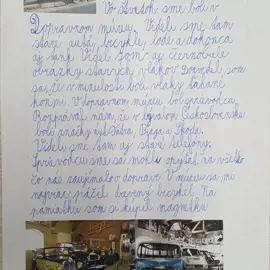 Vo štvrtok sme boli v
Dopravnom múzeu. Videli sme tam
staré autá, bicykle, lode a dokonca
aj tank. Videl som aj čiernobiele
obrázky starých vlakov. Dozvedel som
sa, že v minulosti boli vlaky ťahané
koňmi. V Dopravnom múzeu bol sprievodca.
Rozprával nám, že v bývalom Československu
boli značky áut Tatra, Praga a Škoda.
Videli sme tam aj staré telefóny.
Sprievodcu sme sa mohli spýtať na všetko
čo nás zaujímalo o doprave. V múzeu sa mi
najviac páčil drevený bicykel. Na
pamiatku som si kúpil magnetku